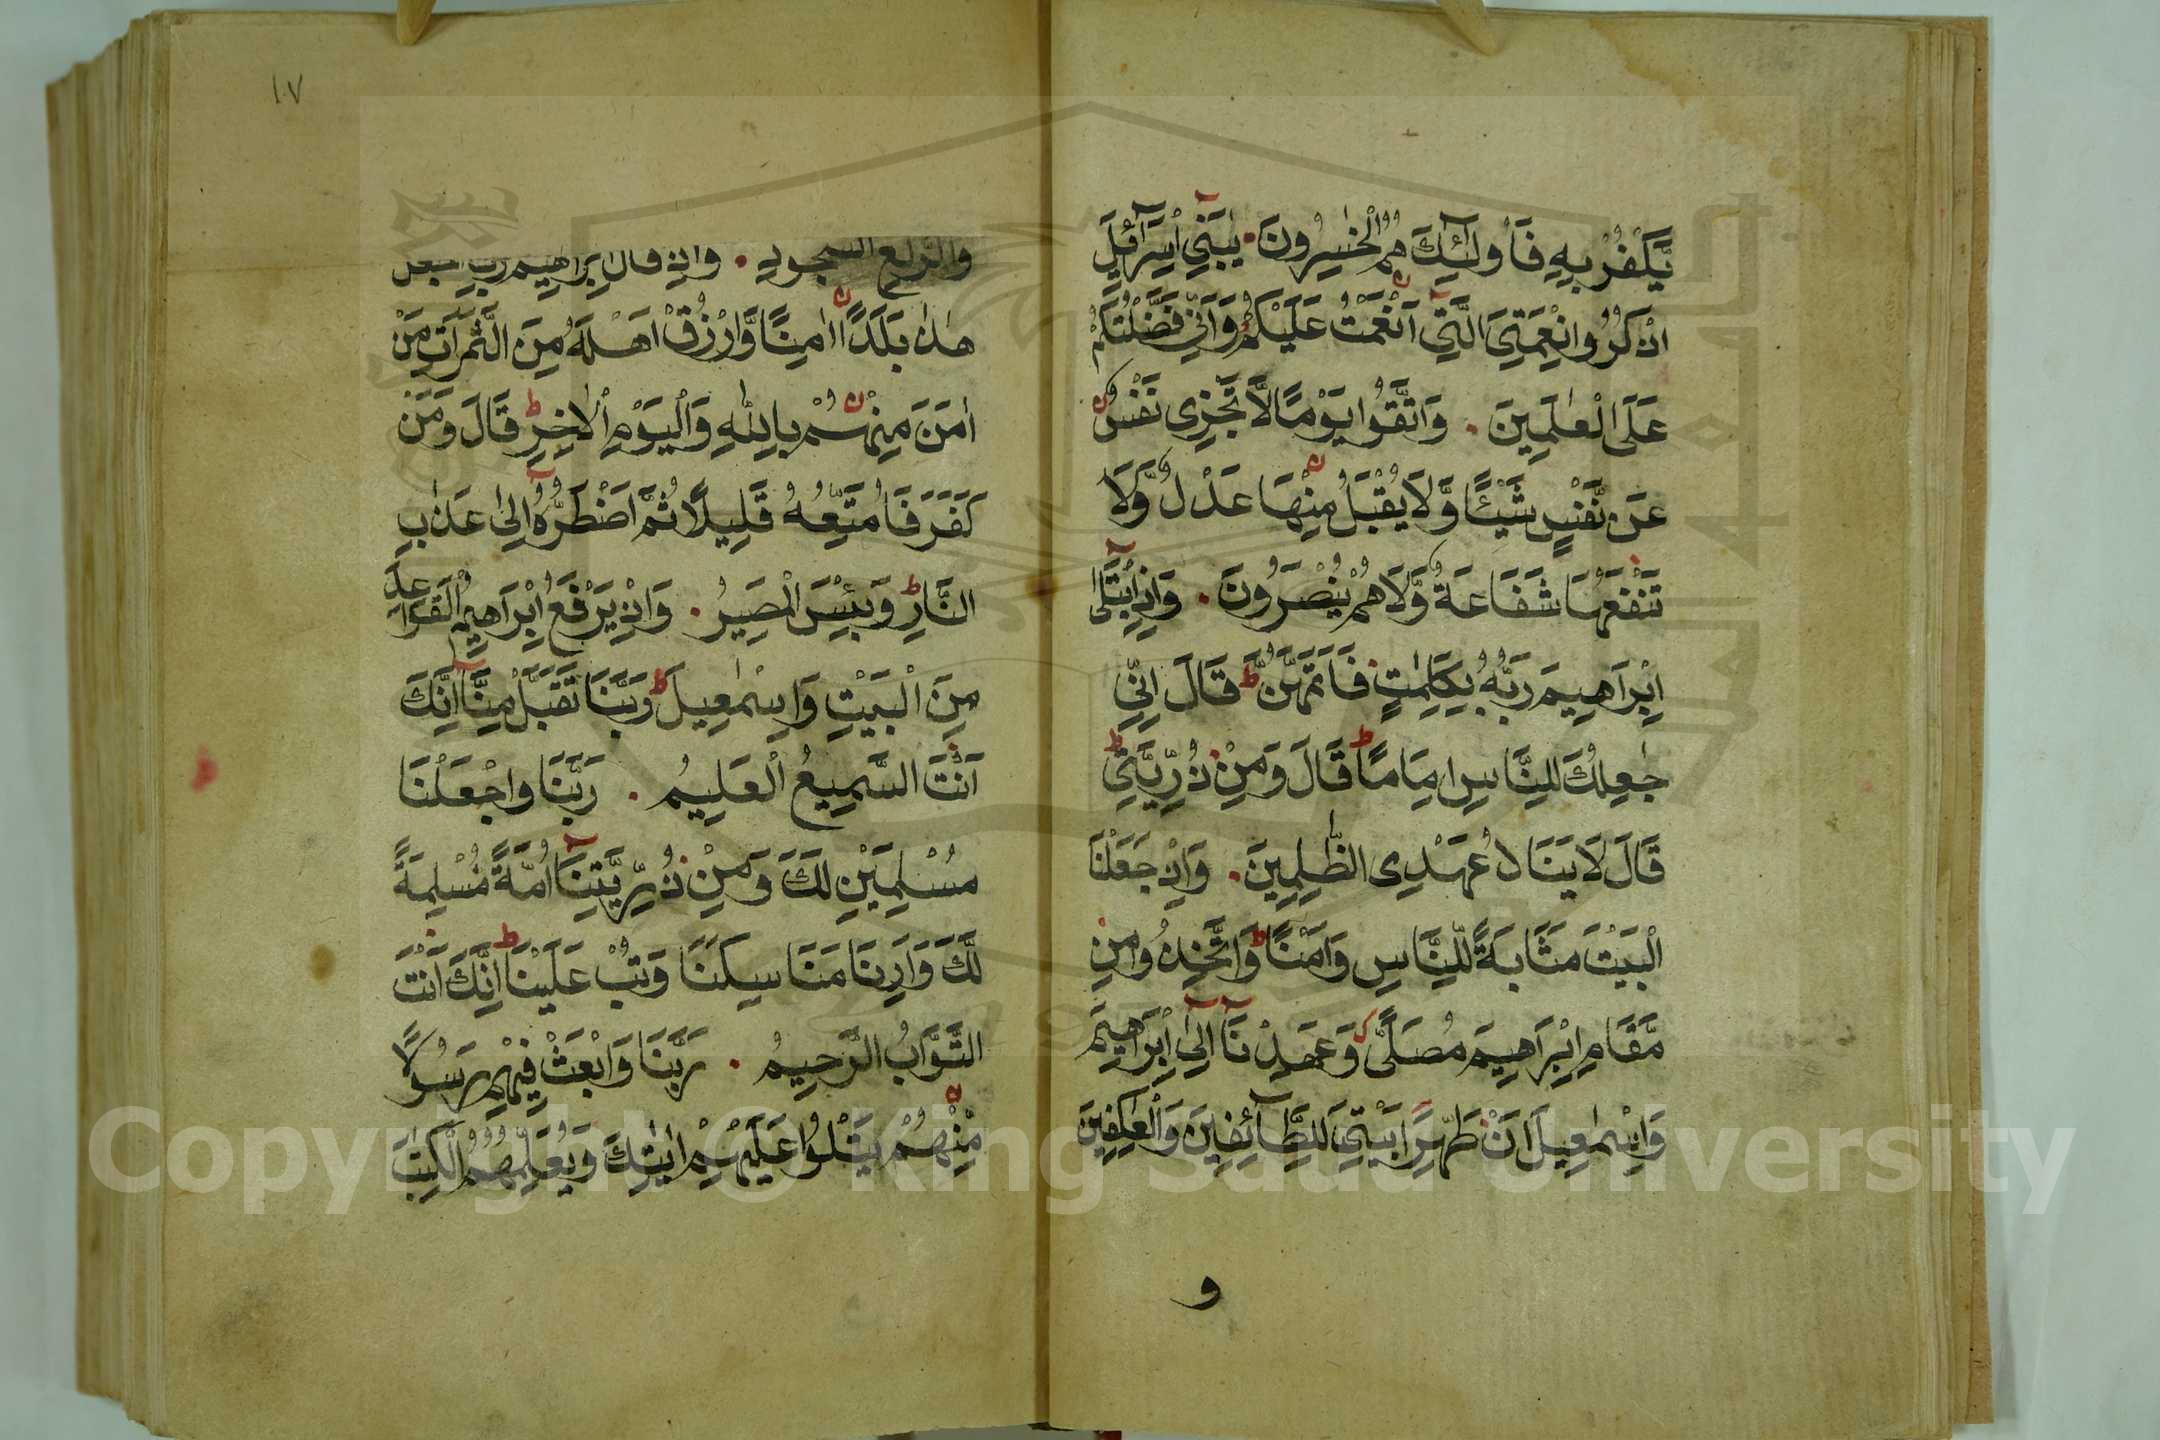 يَّكْفُرْ بِهٖ فَاُولٰٓئِكَ هُمُ الْخٰسِرُونَ۰ يٰبَنِيٓ اِسْرَآئِيلَ
اذْكُرُوا نِعْمَتِيَ الَّتِيٓ اَنْعَمْتُ عَلَيْكُمْ وَاَنِّي فَضَّلْتُكُمْ
عَلَى الْعٰلَمِينَ ۰ وَاتَّقُوا يَوْمًا لَّا تَجْزِى نَفْسٌ
عَن نَّفْسٍ شَيْـًٔا وَّلَا يُقْبَلُ مِنْهَا عَدْلٌ وَّلَا
تَنْفَعُهَا شَفَاعَةٌ وَّلَا هُمْ يُنْصَرُونَ ۰ وَاِذِ ابْتَلٰٓى
اِبْرَاهِيمَ رَبُّهُ بِكَلِمٰتٍ فَاَتَمَّهُنَّ ط قَالَ اِنِّي
جٰعِلُكَ لِلنَّاسِ اِمَامًا ط قَالَ وَمِنْ ذُرِّيَّتِي ط
قَالَ لَا يَنَالُ عَهْدِى الظّٰلِمِينَ ۰ وَاِذْ جَعَلْنَا
الْبَيْتَ مَثَابَةً لِّلنَّاسِ وَاَمْنًا ط وَاتَّخِذُوا مِنْ
مَّقَامِ اِبْرَاهِيمَ مُصَلًّى وَعَهِدْنَآ اِلٰٓى اِبْرَاهِيمَ
وَاِسْمٰعِيلَ اَنْ طَهِّرَا بَيْتِيَ لِلطَّآئِفِينَ وَالْعٰكِفِينَ
و
١٠٧
والرّكع السجود ۰ واذ قال ابراهيم رب اجعل
هٰذَا بَلَدًا اٰمِنًا وَّارْزُقْ اَهْلَهُ مِنَ الثَّمَرَاتِ مَنْ
اٰمَنَ مِنْهُمْ بِاللّٰهِ وَالْيَوْمِ الْاٰخِرِ ط قَالَ وَمَنْ
كَفَرَ فَاُمَتِّعُهُ قَلِيلًا ثُمَّ اَضْطَرُّهُٓ اِلٰى عَذَابِ
النَّارِ ط وَبِئْسَ الْمَصِيرُ ۰ وَاِذْ يَرْفَعُ اِبْرَاهِيمُ الْقَوَاعِدَ
مِنَ الْبَيْتِ وَاِسْمٰعِيلُ ط رَبَّنَا تَقَبَّلْ مِنَّآ اِنَّكَ
اَنْتَ السَّمِيعُ الْعَلِيمُ ۰ رَبَّنَا وَاجْعَلْنَا
مُسْلِمَيْنِ لَكَ وَمِنْ ذُرِّيَّتِنَآ اُمَّةً مُسْلِمَةً
لَّكَ وَاَرِنَا مَنَاسِكَنَا وَتُبْ عَلَيْنَا ط اِنَّكَ اَنْتَ
التَّوَّابُ الرَّحِيمُ ۰ رَبَّنَا وَابْعَثْ فِيْهِمْ رَسُوْلًا
مِّنْهُمْ يَتْلُوا عَلَيْهِمْ اٰيٰتِكَ وَيُعَلِّمُهُمُ الْكِتٰبَ
Copyright © King Saud University